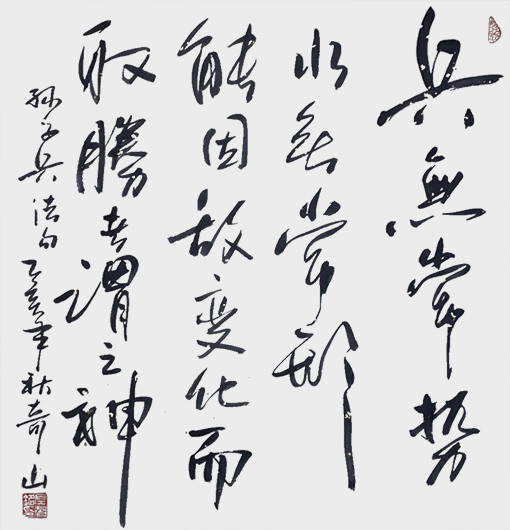 兵無常势
水無常形
能因敌变化而
取勝者謂之神
孙子兵法句乙亥年秋奇山